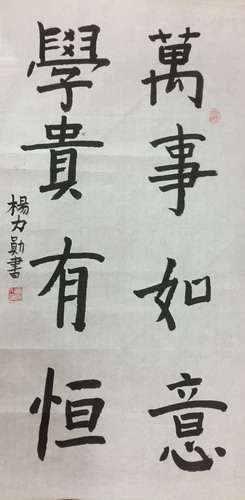 萬事如意
學貴有恒
楊力勛書